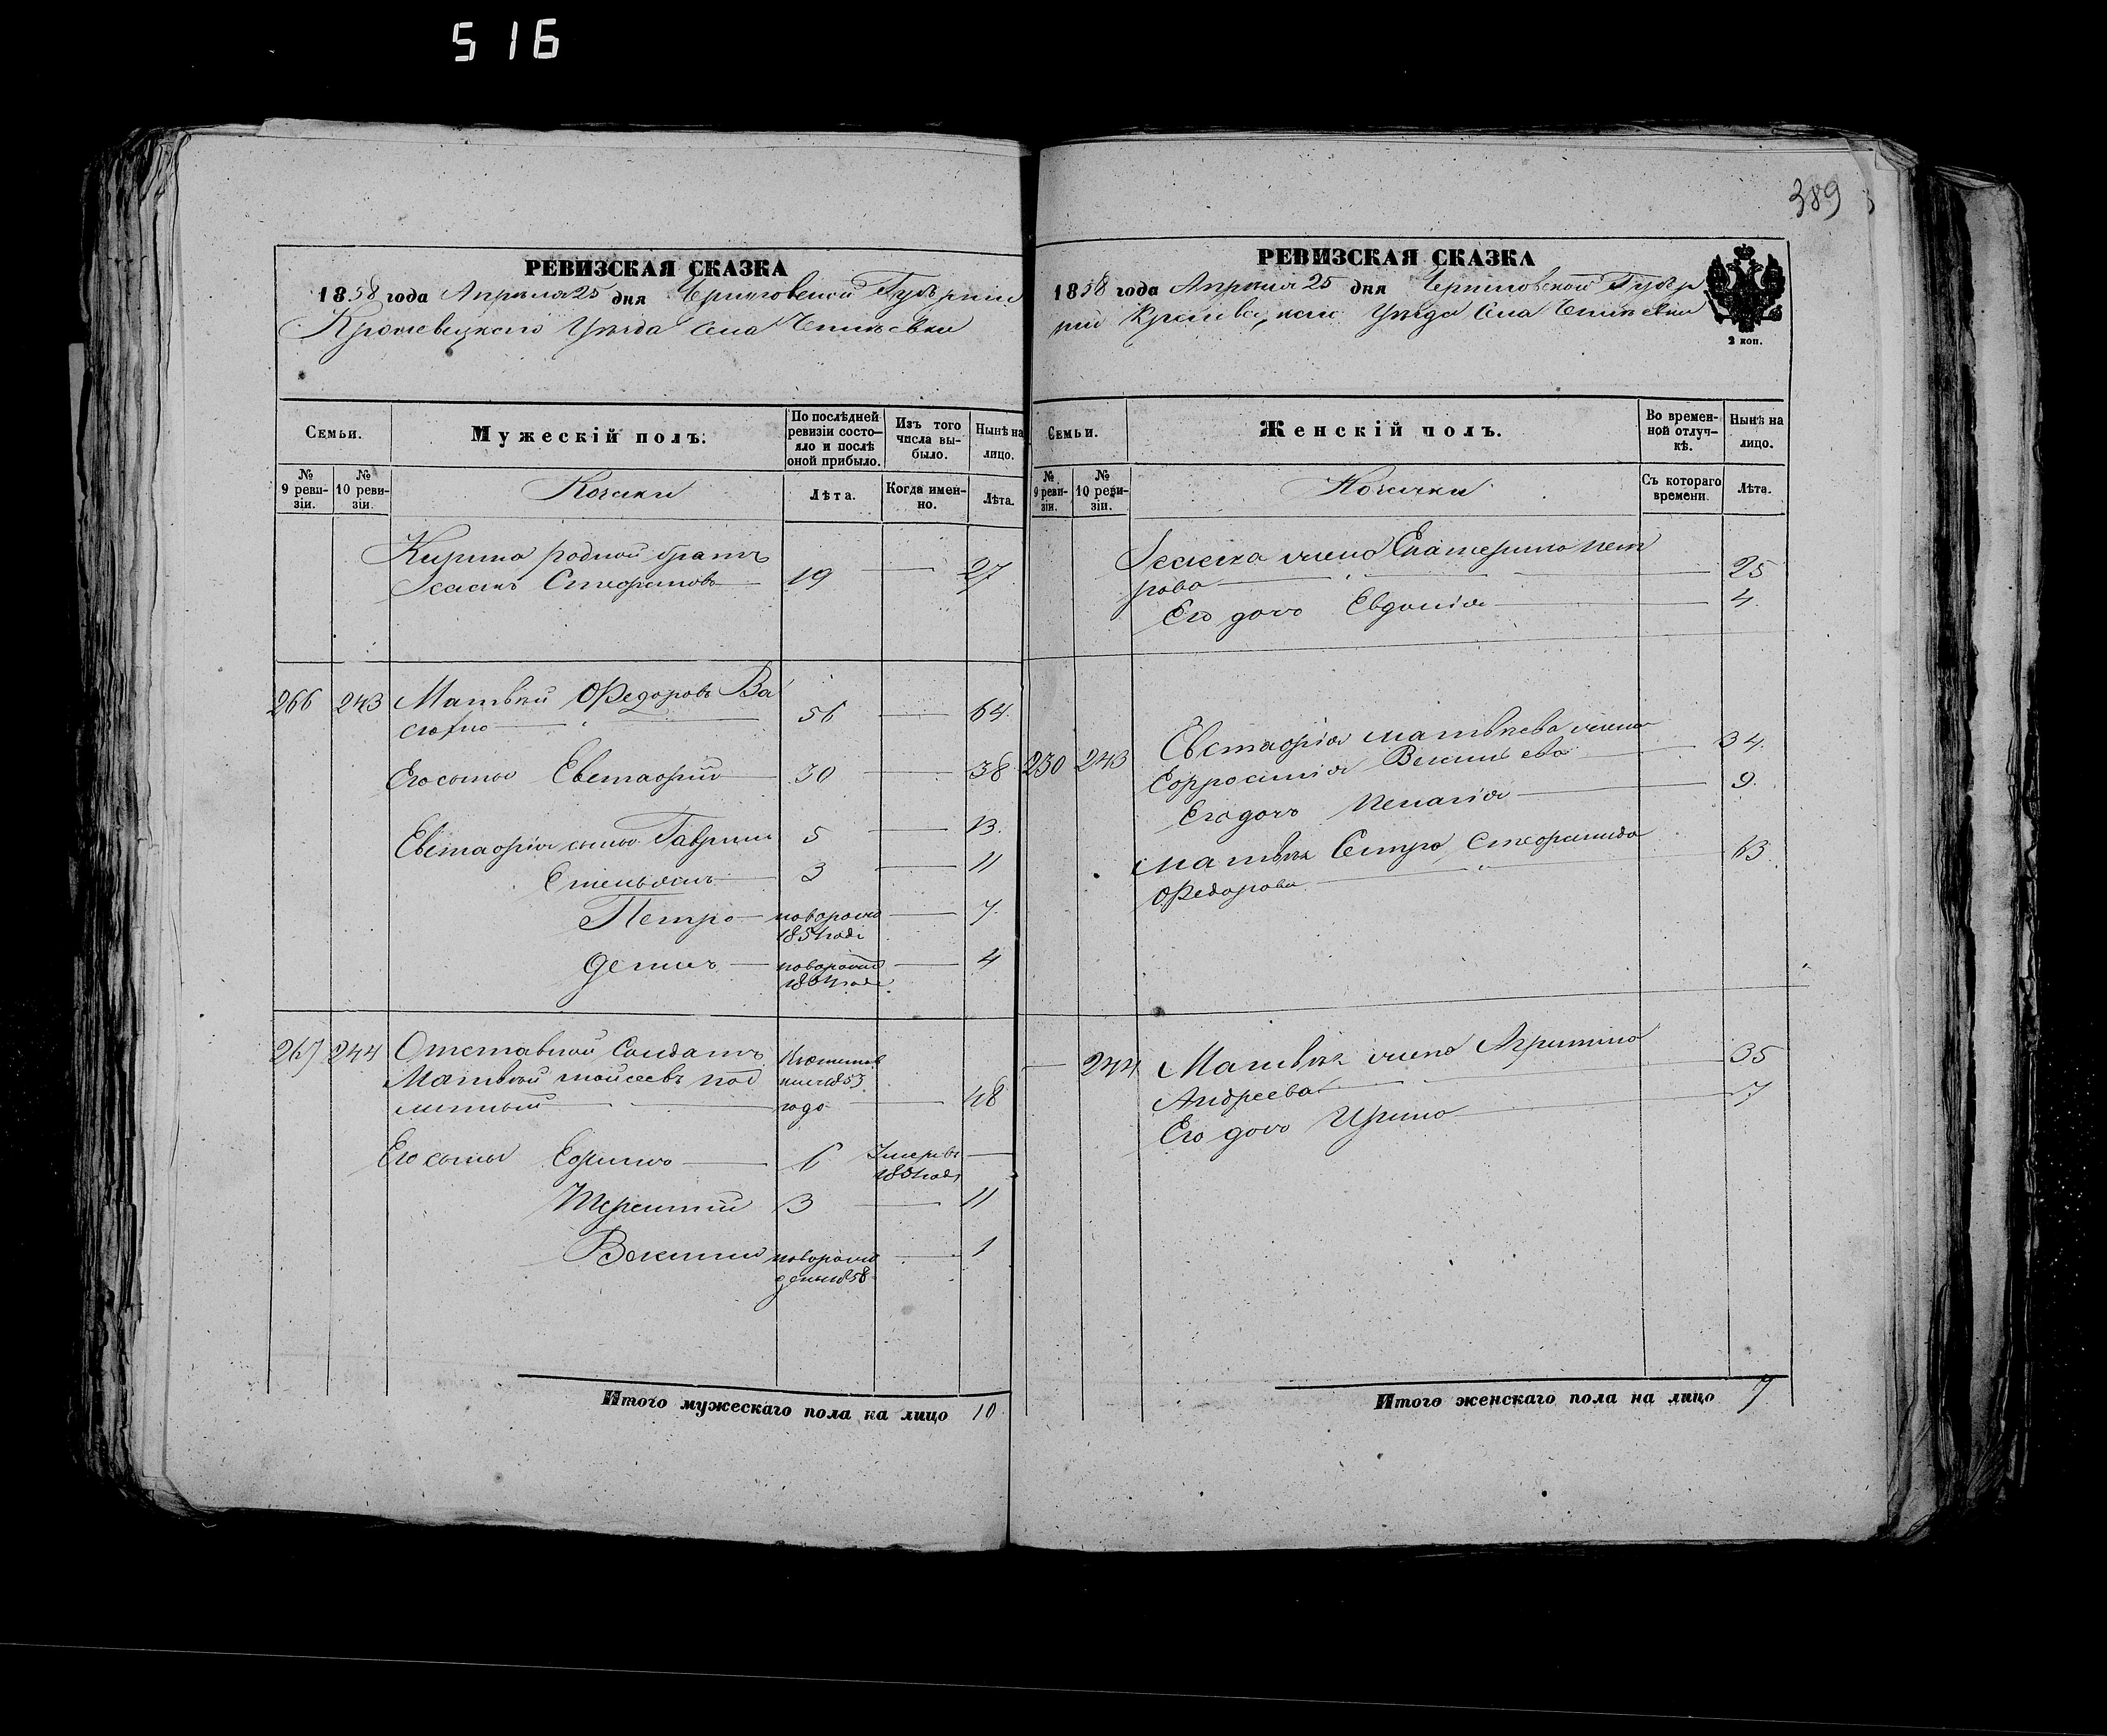 516
389
РЕВИЗСКАЯ СКАЗКА
1858 года Апреля 25 дня Черниговской Губерніи
Кролевецкаго Уезда Села
Семьи.
Мужескій полъ.
По послѣдней ревизіи состо-
яло и послѣ
оной прибыло.
Изъ того
числа вы-
было.
Нынѣ на
лицо.
№
9 реви-
зіи.
№
10 реви-
зіи.
Козаки
Лѣта.
Когда имен-
но.
Лѣта.
родной братъ
19 — 27
266 243 Матвѣй Федоровъ Ва
56 — 64
Его сынъ Евстафій 30 — 38
Евстафія сыны Гаврило 5 — 13
Емельянъ 3 — 11
Петро новорожд — 7
1851 года
новорожд — 4
1854 года
267 244 Отставной Солдатъ
Матвей Моисеевъ Под
1853
года — 48
Его сыны Ефимъ 6 Умеръ въ —
1851 годѣ
Терентий 3 — 11
новорож — 1
1858
Итого мужескаго пола на лицо 10
РЕВИЗСКАЯ СКАЗКА
1858 года Апреля 25 дня Черниговской Губер
ніи Кролевецкаго Уезда Села
2 коп.
Семьи.
Женскій полъ.
Во времен-
ной отлуч-
кѣ.
Нынѣ на
лицо.
№
9 реви-
зіи.
№
10 реви-
зіи.
Козачки
Съ котораго
времени.
Лѣта.
жена Екатерина Пет
рова — 25
Его дочь Евдокія — 4
Евстафія Матвѣева жена
230 243 Ефросинія — 34
Его дочь Пелагія — 9
Матвѣя Сестра Стефанида
Федорова — 63
— 244 Матвѣя жена Агрипина
Андреева — 35
Его дочь Ирина — 7
Итого женскаго пола на лицо 7